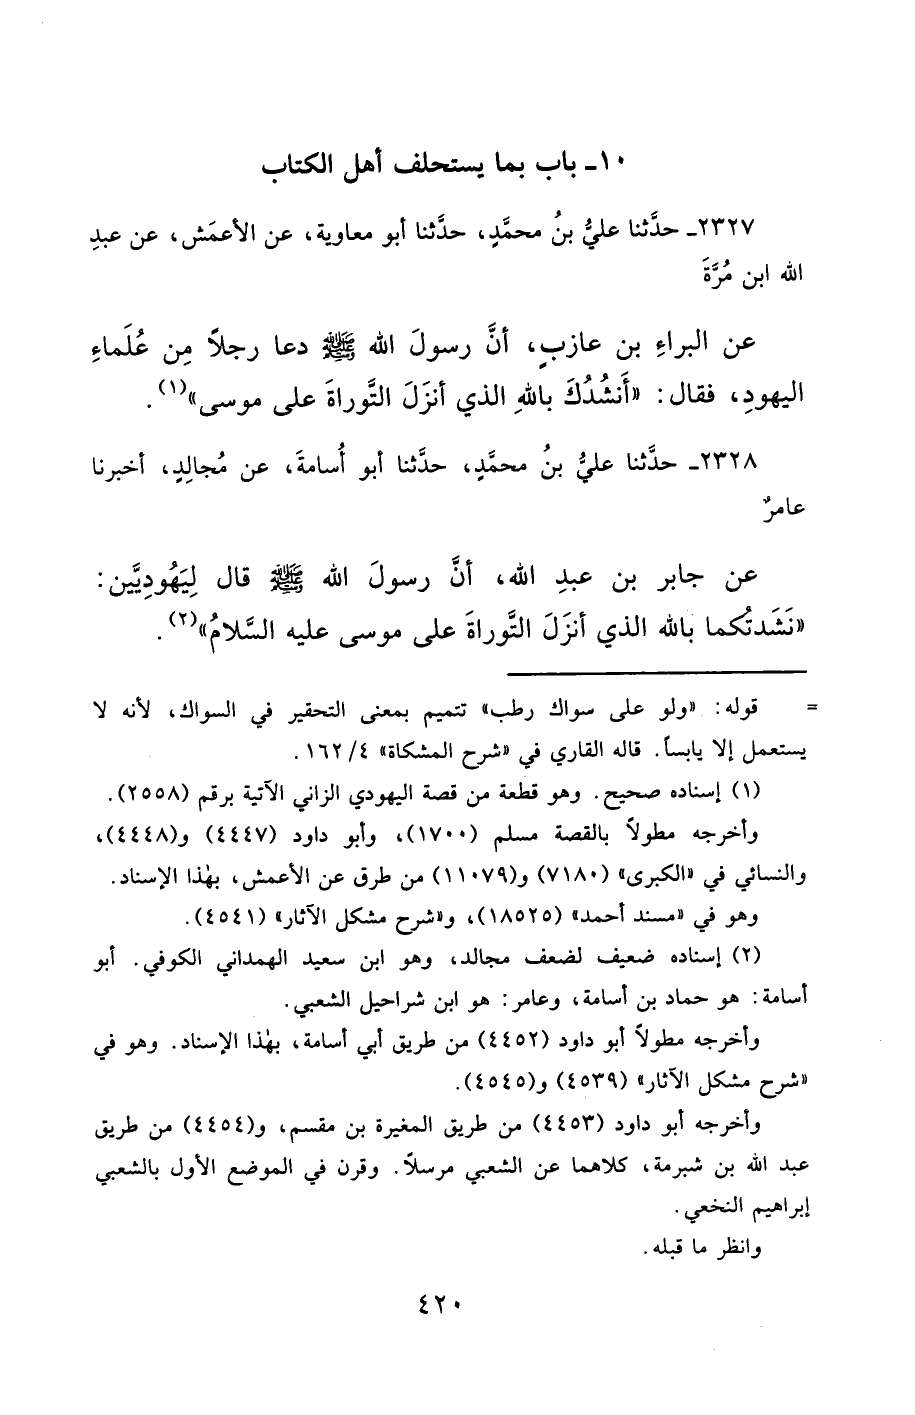 ١٠ـ باب بما يستحلف أهل الكتاب
٢٣٢٧ـ حدَّثنا عليُّ بنُ محمَّدٍ، حدَّثنا أبو معاوية، عن الأعمَش، عن عبدِ
الله ابن مُرَّةَ
عن البراءِ بن عازبٍ، أنَّ رسولَ الله ﷺ دعا رجلاً مِن عُلَماءِ
اليهودِ، فقال: «أَنشُدُكَ باللهِ الذي أنزَلَ التَّوراةَ على موسى»(١).
٢٣٢٨ـ حدَّثنا عليُّ بنُ محمَّدٍ، حدَّثنا أبو أُسامةَ، عن مُجالِدٍ، أخبرنا
عامرٌ
عن جابر بن عبدِ الله، أنَّ رسولَ الله ﷺ قال لِيَهُودِيَّين:
«نَشَدتُكما بالله الذي أنزَلَ التَّوراةَ على موسى عليه السَّلامُ»(٢).
= قوله: «ولو على سواك رطب» تتميم بمعنى التحقير في السواك، لأنه لا
يستعمل إلا يابساً. قاله القاري في «شرح المشكاة» ٤/ ١٦٢.
(١) إسناده صحيح. وهو قطعة من قصة اليهودي الزاني الآتية برقم (٢٥٥٨).
وأخرجه مطولاً بالقصة مسلم (١٧٠٠)، وأبو داود (٤٤٤٧) و(٤٤٤٨)،
والنسائي في «الكبرى» (٧١٨٠) و(١١٠٧٩) من طرق عن الأعمش، بهٰذا الإسناد.
وهو في «مسند أحمد» (١٨٥٢٥)، و«شرح مشكل الآثار» (٤٥٤١).
(٢) إسناده ضعيف لضعف مجالد، وهو ابن سعيد الهمداني الكوفي. أبو
أسامة: هو حماد بن أسامة، وعامر: هو ابن شراحيل الشعبي.
وأخرجه مطولاً أبو داود (٤٤٥٢) من طريق أبي أسامة، بهٰذا الإسناد. وهو في
«شرح مشكل الآثار» (٤٥٣٩) و(٤٥٤٥).
وأخرجه أبو داود (٤٤٥٣) من طريق المغيرة بن مقسم، و(٤٤٥٤) من طريق
عبد الله بن شبرمة، كلاهما عن الشعبي مرسلاً. وقرن في الموضع الأول بالشعبي
إبراهيم النخعي.
وانظر ما قبله.
٤٢٠